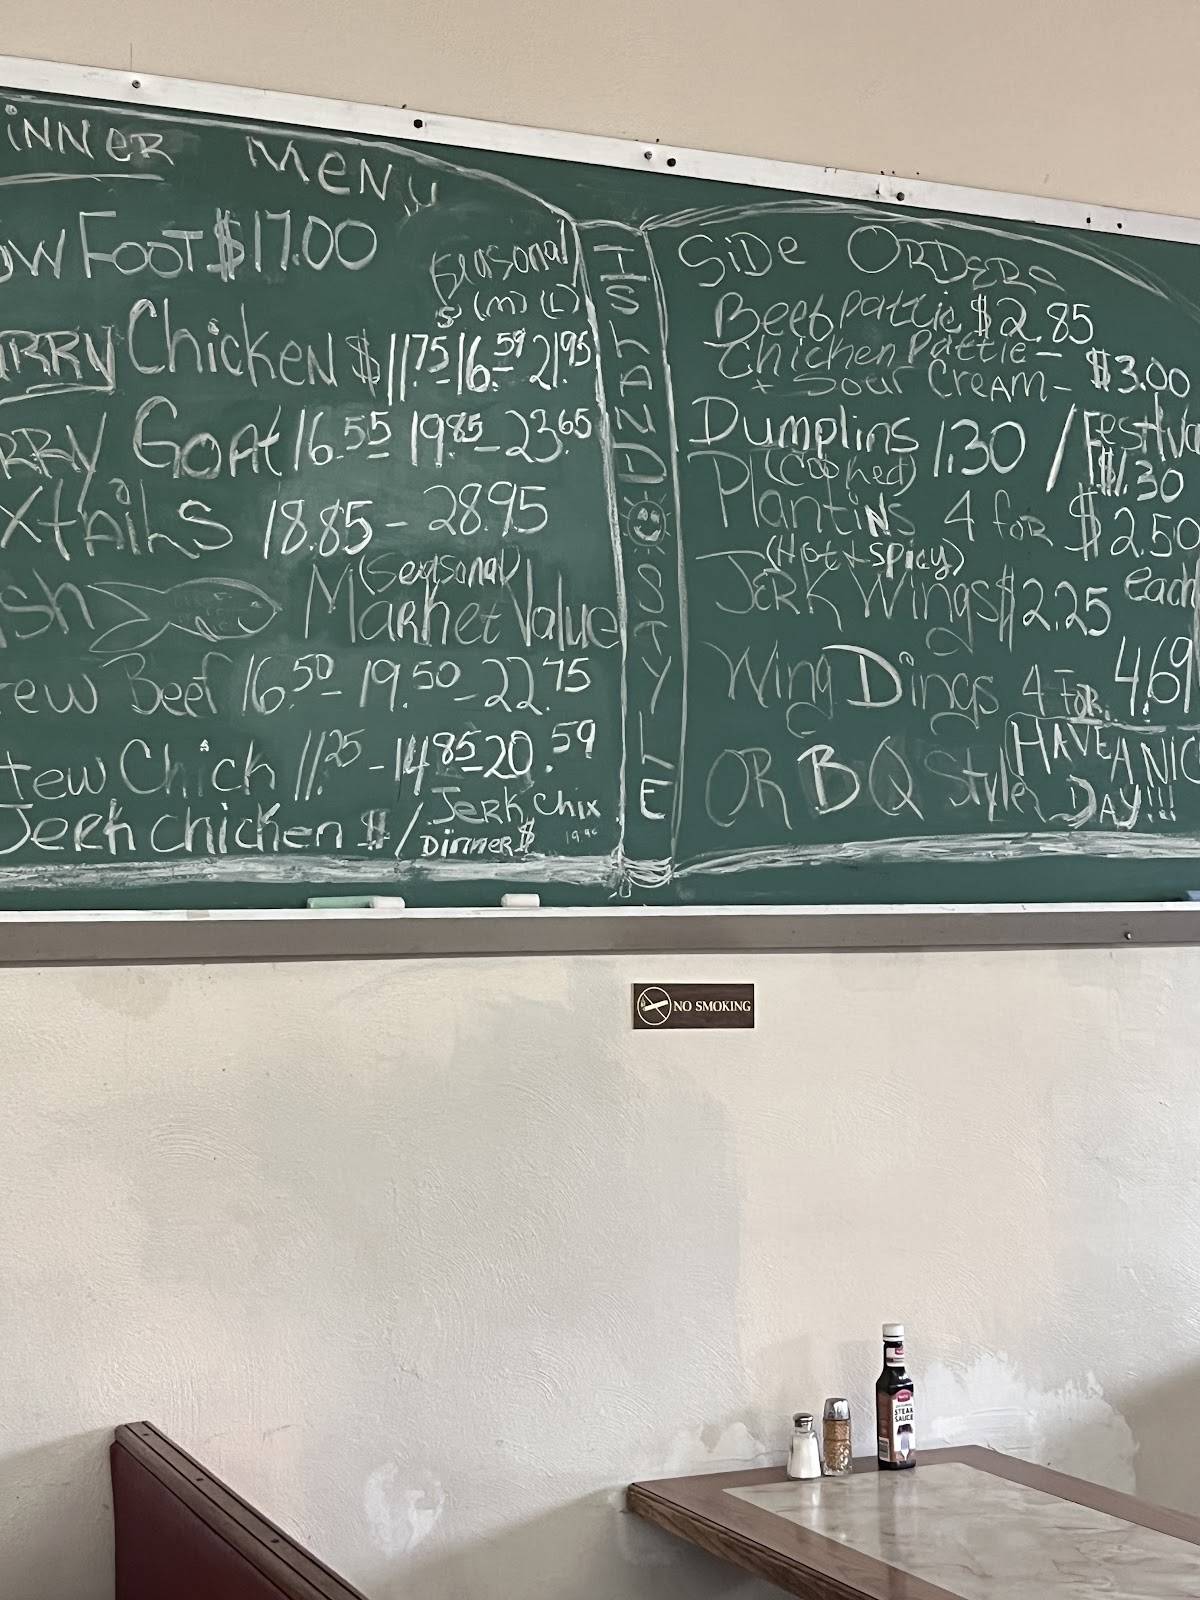 iNNeR MeNu
ow Foot $17.00
Seasonal
S (M) (L)
URRY Chicken $11.75-16.59 21.95
RRY Goat 16.55 19.85-23.65
xtails 18.85 - 28.95
(Seasonal)
sh Market Value
ew Beef 16.50-19.50-22.75
tew Chick 11.25 - 14.85-20.59
Jerk chicken $ / Jerk Chix
Dinner $
ISLAND STYLE
Side Orders
Beef pattie $2.85
Chicken Pattie -
+ Sour Cream - $3.00
Dumplins 1.30 / Festiva
(Cooked) $1.30
Plantins 4 for $2.50
(Hot + Spicy)
Jerk Wings $2.25 each
Wing Dings 4 FOR 4.69
OR BQ Style
HAVE A NIC
DAY!!!
NO SMOKING
STEAK
SAUCE